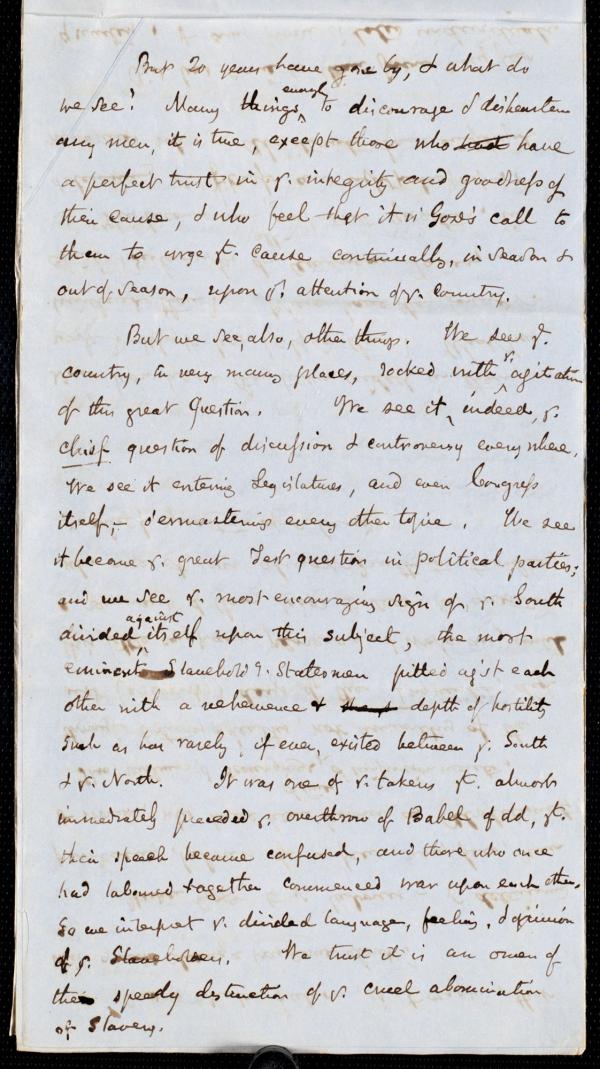 But 20 years have gone by, & what do
we see? Many things enough to discourage & dishearten
any men, it is true, except those who had have
a perfect trust in y. integrity and goodness of
their cause, & who feel that it is God's call to
them to urge yt. cause continually, in season &
out of season, upon y. attention of y. country.
But we see, also, other things. We see y.
country, in very many places, rocked with y. agitation
of this great Question. We see it, indeed, y.
chief question of discussion & controversy everywhere.
We see it entering Legislatures, and even Congress
itself,- o'ermastering every other topic. We see
it become y. great Test question in political parties;
and we see y. most encouraging sign of y. South
divided against itself upon this subject, the most
eminent Slavehold g. Statesmen pitted agst each
other with a vehemence & depth of hostility
such as has rarely, if ever, existed between y. South
& y. North. It was one of y. tokens yt. almost
immediately preceded y. overthrow of Babel of old, yt.
their speech became confused, and those who once
had labored together commenced war upon each other.
So we interpret y. divided language, feeling, & opinion
of y. Slaveholders. We trust it is an omen of
the speedy destruction of y. cruel abomination
of Slavery.